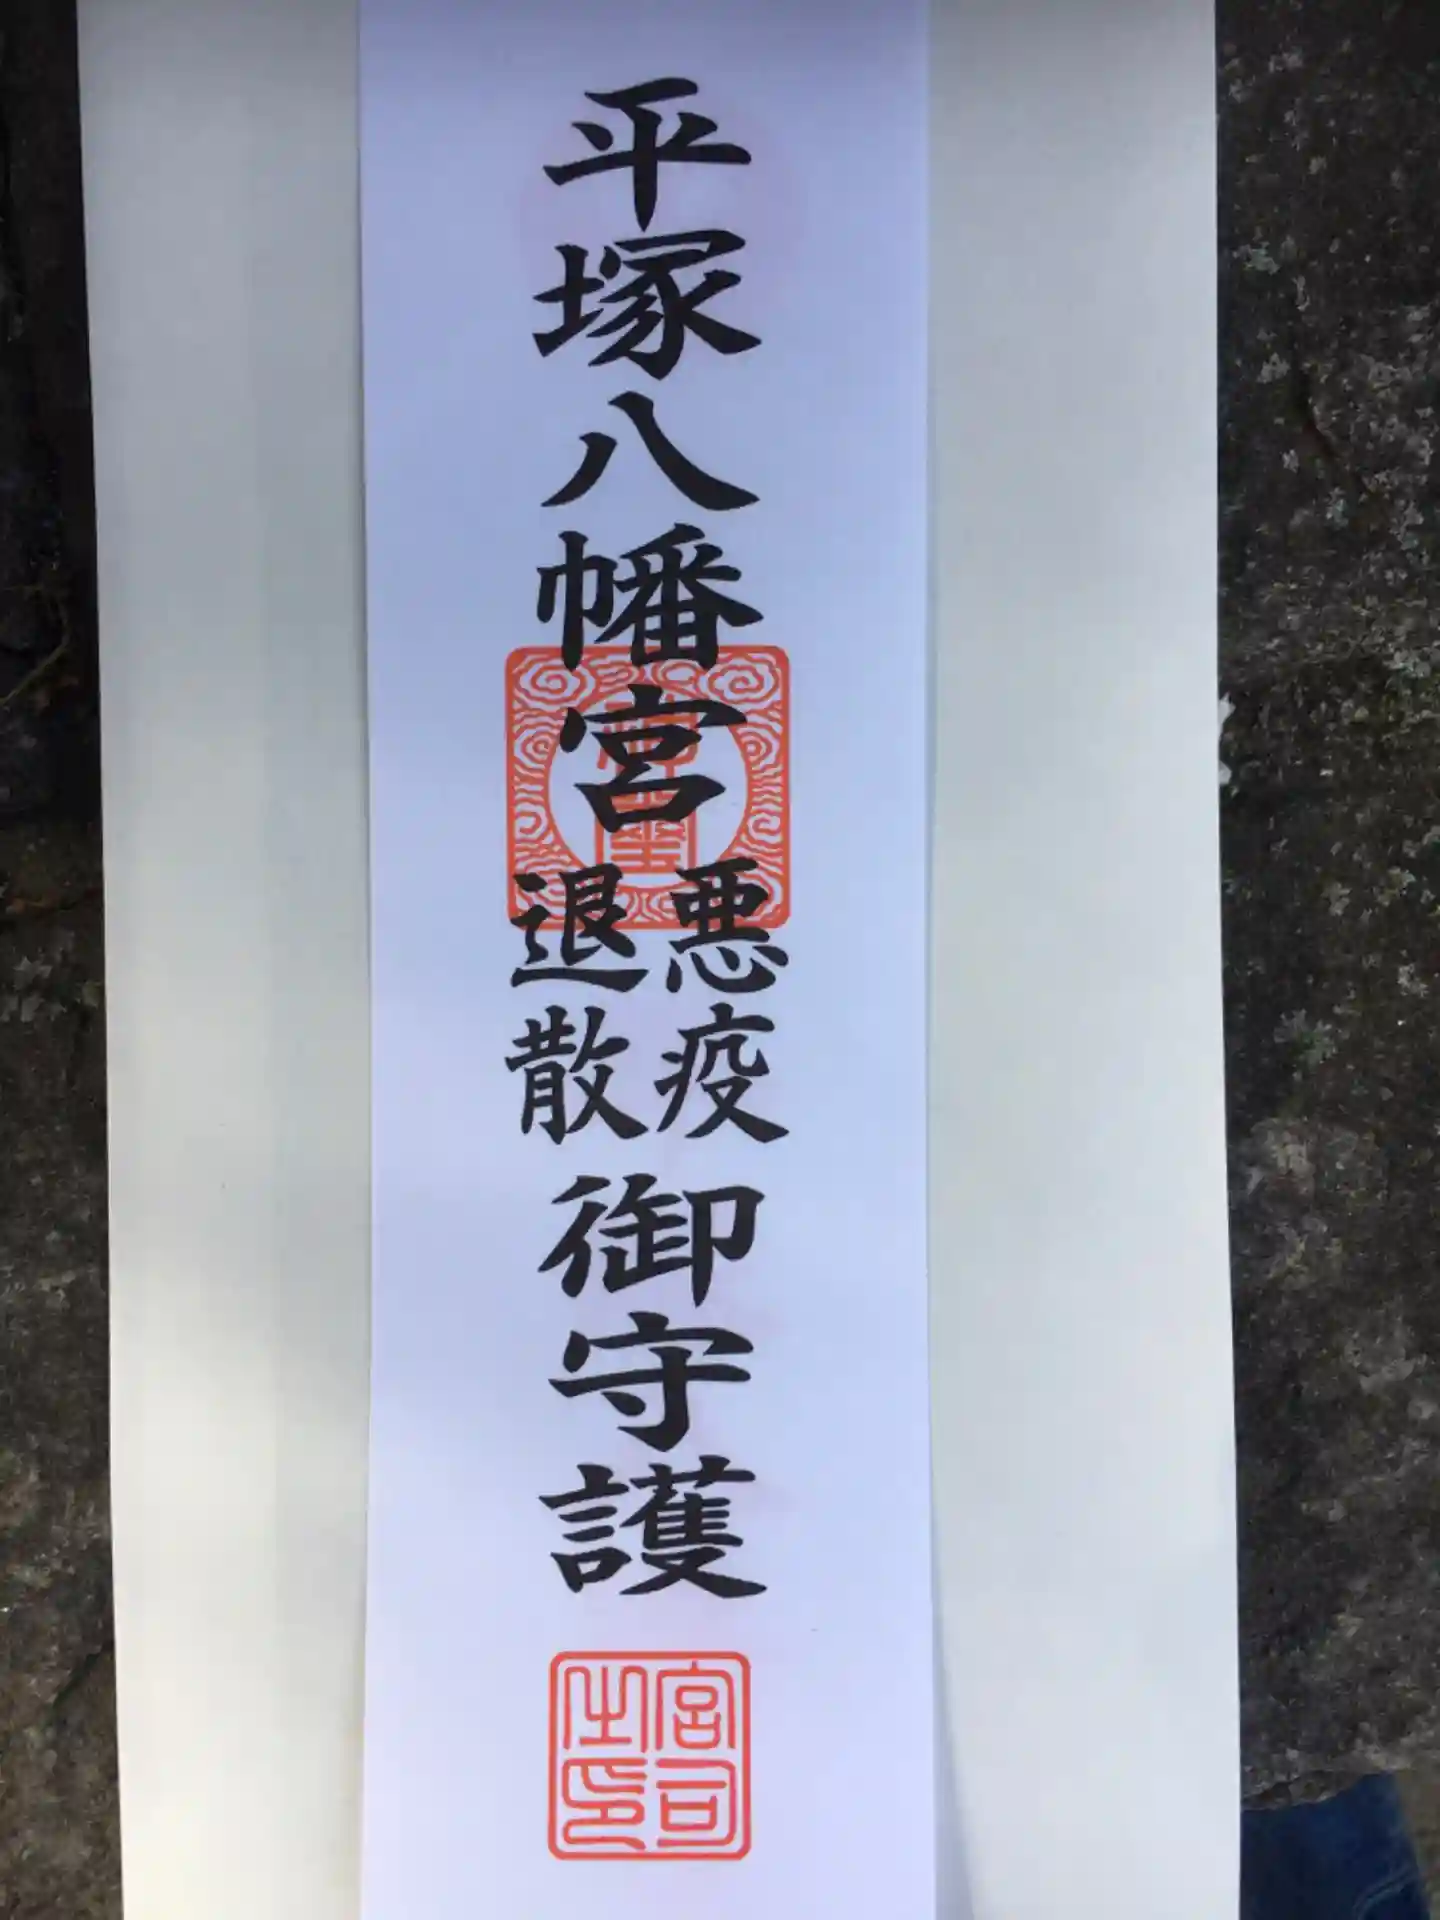 平塚八幡宮
悪疫
退散
御守護
宮司
之印